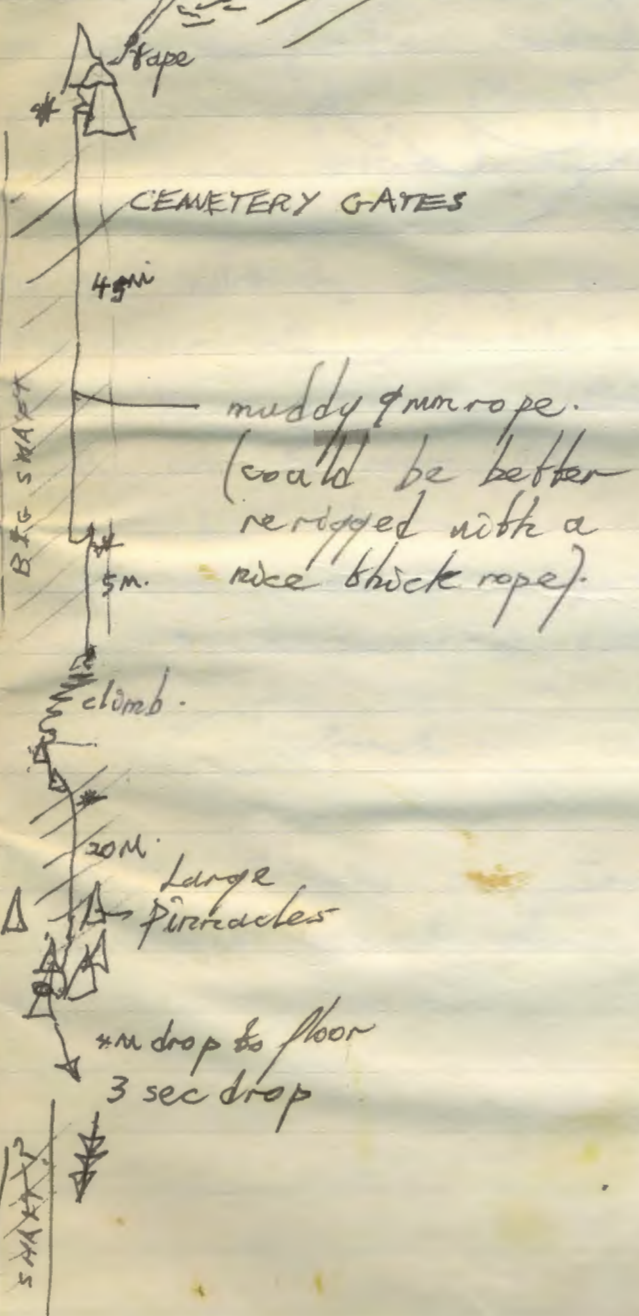 tape
CEMETERY GATES
BIG SHAFT
muddy 9mm rope.
(could be better
rerigged with a
nice thick rope).
5M.
climb.
20M.
Large
Pinnacles
drop to floor
3 sec drop
SHAFT?